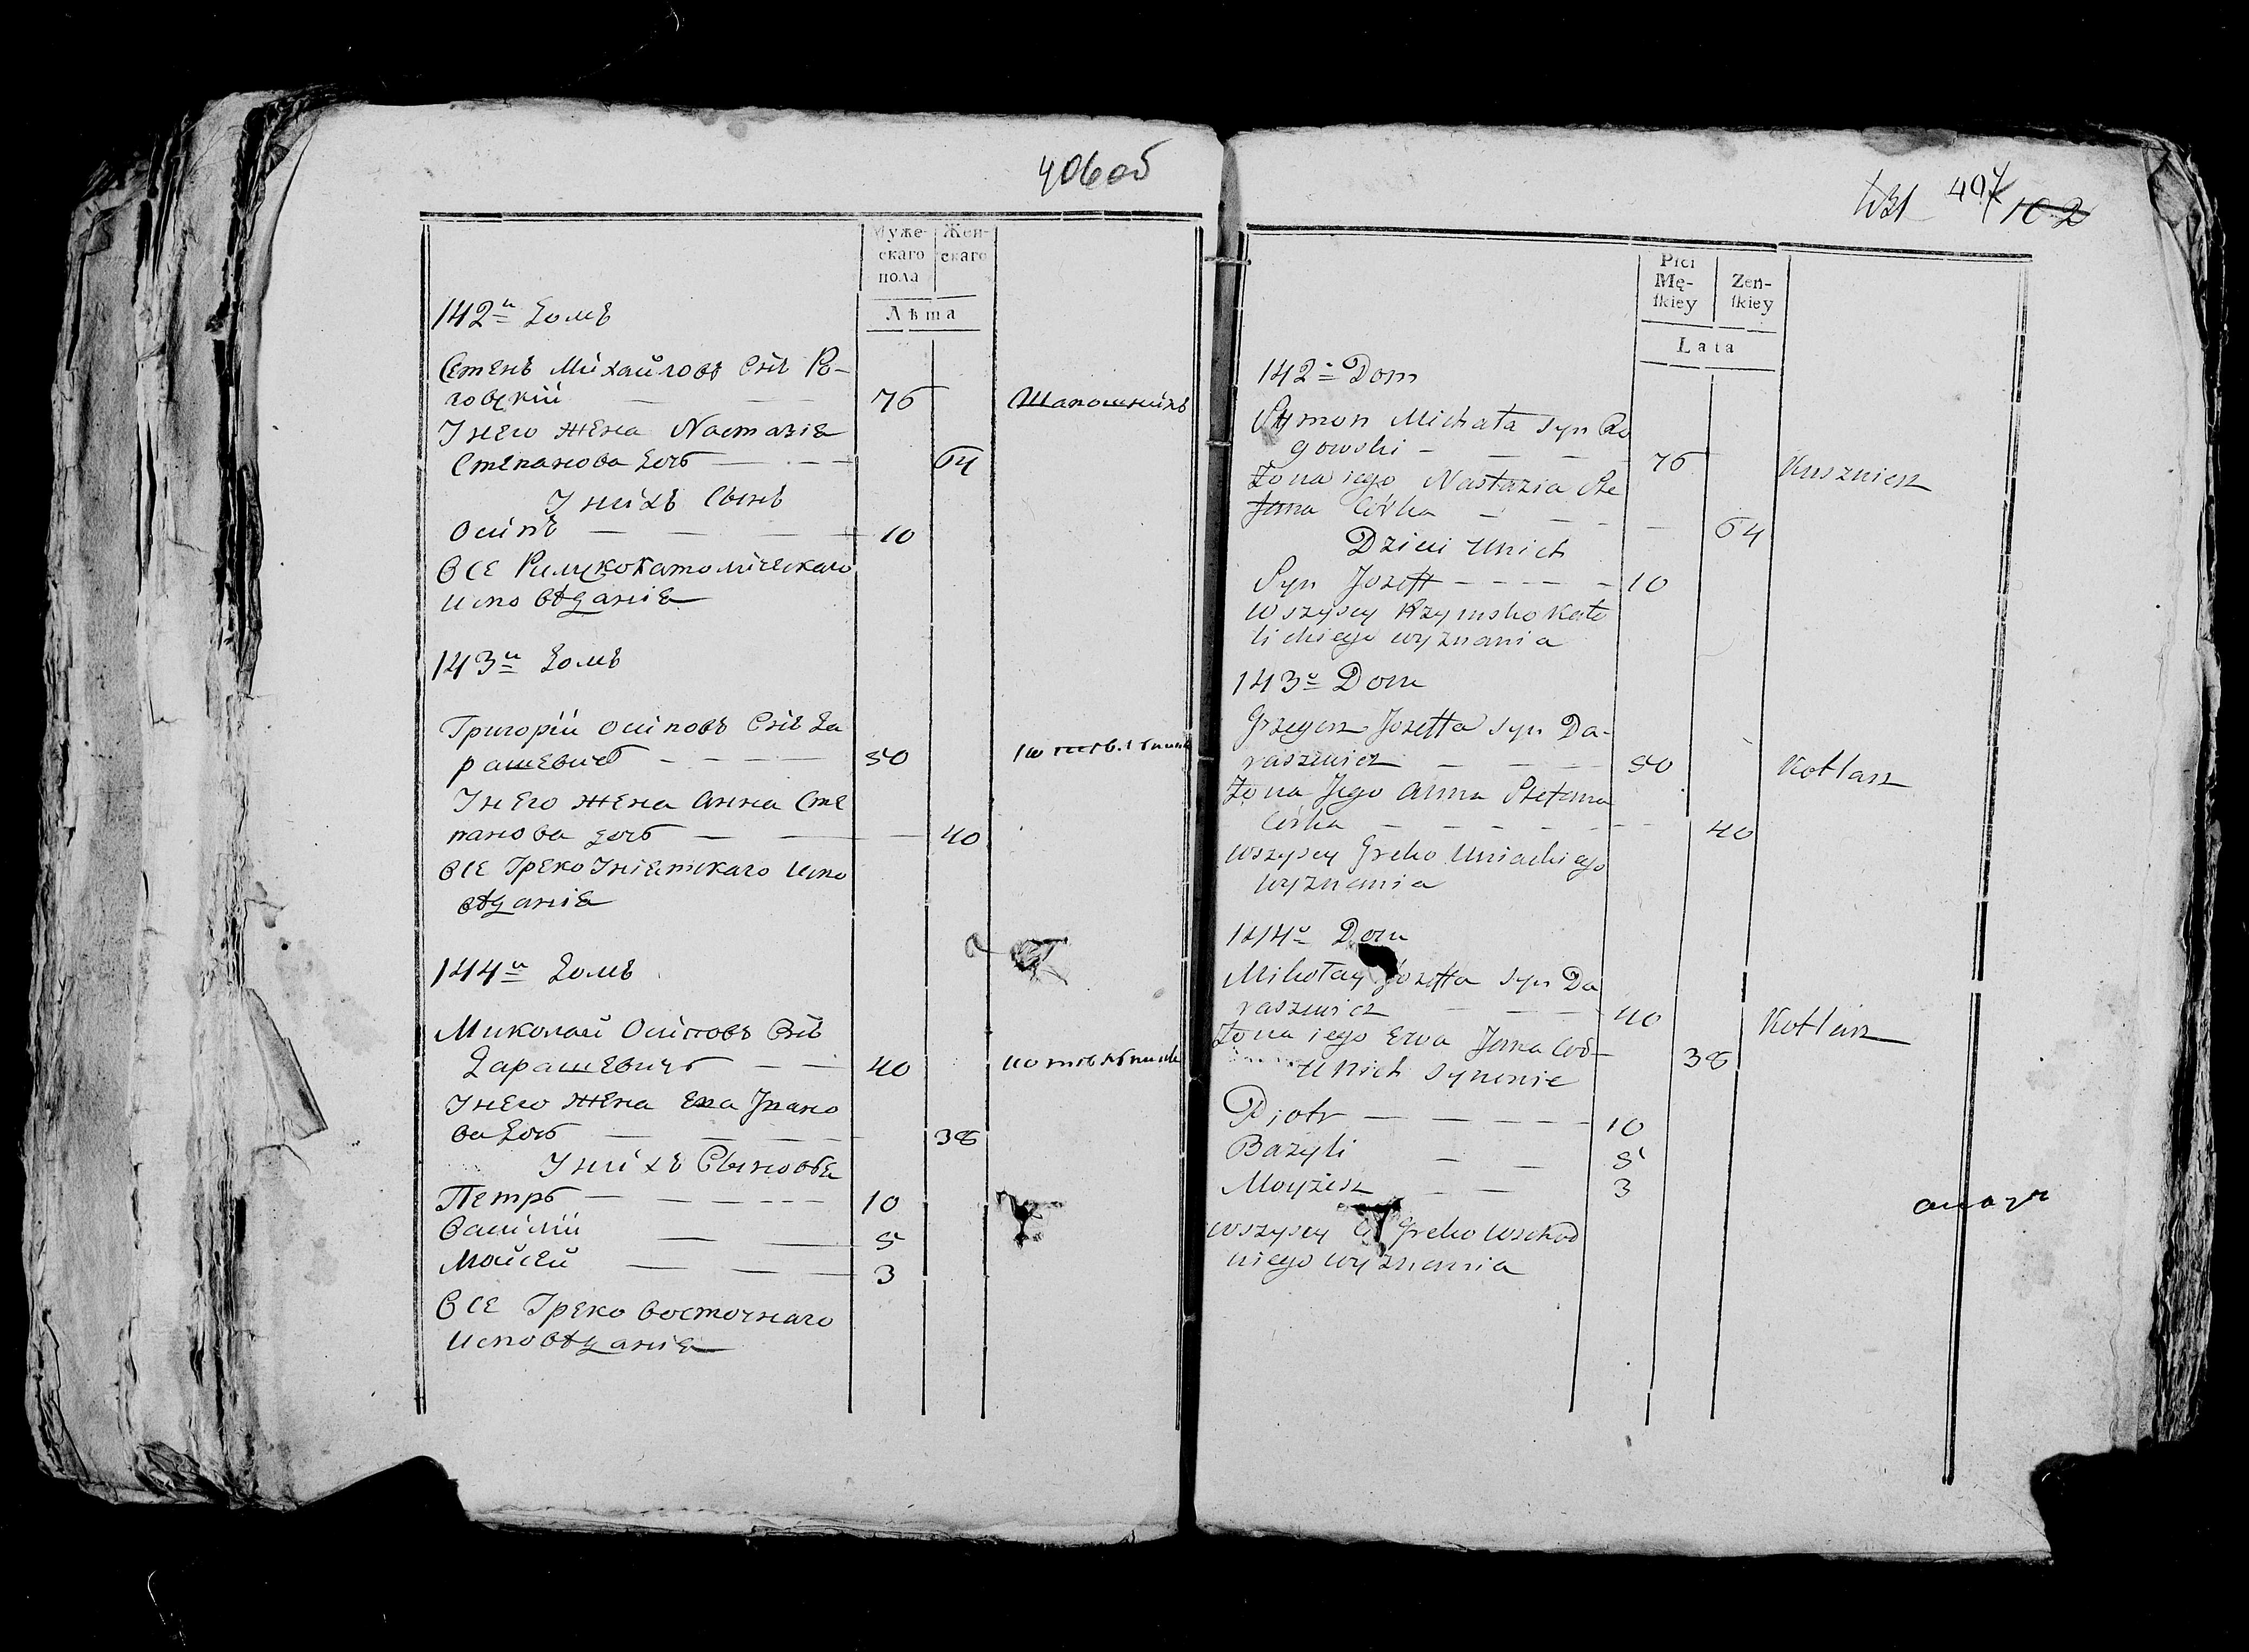 406об
Муже-
скаго
пола
Жен-
скаго
Лѣта
142й Домъ
Семенъ Михайловъ Снъ Ро-
говскій 76 Шапошникъ
У него жена Настазіа
Степанова дочь 64
У нихъ Сынъ
Осипъ 10
Все Римскокатолическаго
исповѣданія
143й Домъ
Григорій Осиповъ Снъ Да
рашевичъ 50
У него жена Анна Сте
панова дочь 40
Все Греко Уніатскаго испо
вѣданія
144й Домъ
Миколай Осиповъ Снъ
Дарашевичъ 40
У него жена Ева Ивано
ва дочь 38
У нихъ Сыновья
Петръ 10
Василій 5
Мойсей 3
Все Греко восточнаго
исповѣданія
407
102
Płci
Mę-
ſkiey
Zeń-
ſkiey
Lata
142o Dom
Symon Michała Syn Ro
gowski 76 Kuszniesz
Żona iego Nastazia Ste
fana Córka 64
Dzieci Unich
Syn Jozeff 10
Wszyscy Rzymsko Kato
lickiego wyznania
143o Dom
Grzegorz Jozeffa Syn Da-
raszewicz 50 Kotlarz
Żona Jego Anna Stefana
Córka 40
Wszyscy Greko Uniackiego
wyznania
144o Dom
Mikołay Jozeffa Syn Da
raszewicz 40 Kotlarz
Żona iego Ewa Jana Cór- 38
Unich Synowie
Piotr 10
Bazyli 5
Moyżesz 3
Wszyscy Greko Wschod
niego wyznania